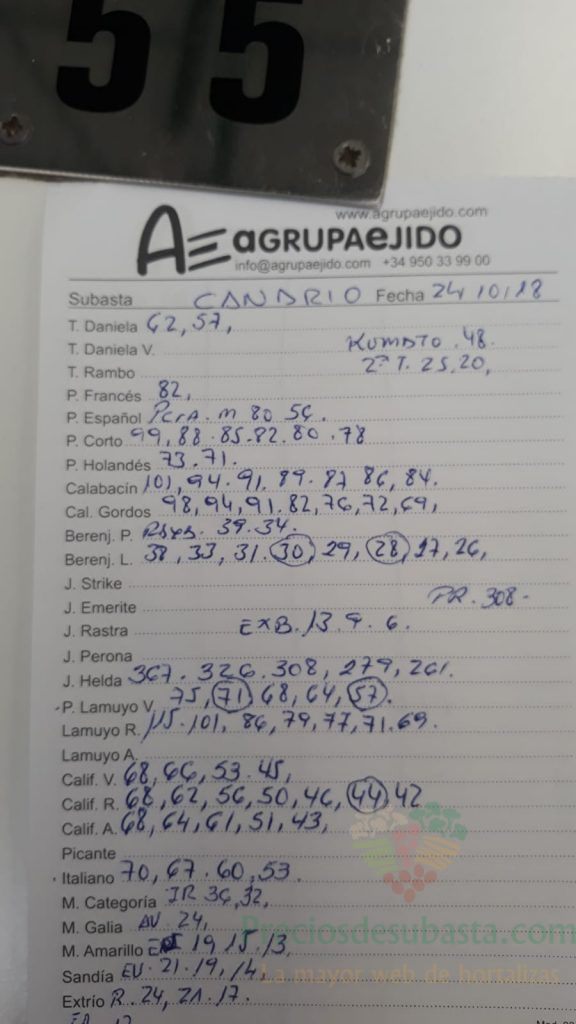 55
www.agrupaejido.com
AGRUPAEJIDO
info@agrupaejido.com +34 950 33 99 00
Subasta CANDRIO Fecha 24/10/18
T. Daniela 62, 57,
T. Daniela V. KUMATO. 48.
T. Rambo 2ª T. 25, 20,
P. Francés 82,
P. Español m 80 56.
P. Corto 99, 88. 85. 82. 80. 78
P. Holandés 73. 71.
Calabacín 101, 94. 91. 89. 87 86, 84.
Cal. Gordos 98, 94, 91. 82, 76, 72, 69,
Berenj. P. 39. 34.
Berenj. L. 38, 33, 31. 30, 29, 28, 27, 26,
J. Strike
J. Emerite PR. 308-
J. Rastra EXB. 13. 9. 6.
J. Perona
J. Helda 367. 326. 308, 279, 261.
P. Lamuyo V. 75, 71, 68, 64, 57.
Lamuyo R. 115. 101, 86, 79, 77, 71. 69.
Lamuyo A.
Calif. V. 68, 66, 53. 45,
Calif. R. 68, 62, 56, 50, 46, 44, 42
Calif. A. 68, 64, 61, 51, 43,
Picante
Italiano 70, 67. 60, 53.
M. Categoría IR 36, 32,
M. Galia AV. 24,
M. Amarillo 19 15. 13,
Sandía EV. 21. 19, 14,
Extrío R. 24, 21. 17.
Preciosdesubasta.com
La mayor web de hortalizas